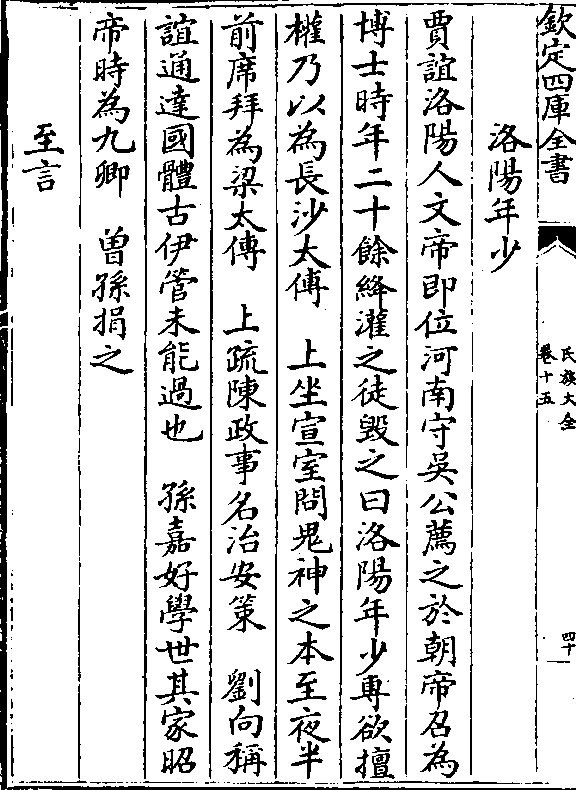 欽定四庫全書
氏族大全
卷十五
四十一
洛陽年少
賈誼洛陽人文帝即位河南守吳公薦之於朝帝召為
博士時年二十餘絳灌之徒毀之曰洛陽年少專欲擅
權乃以為長沙太傅　上坐宣室問鬼神之本至夜半
前席拜為梁太傅　上疏陳政事名治安策　劉向稱
誼通達國體古伊管未能過也　孫嘉好學世其家昭
帝時為九卿　曾孫捐之
至言